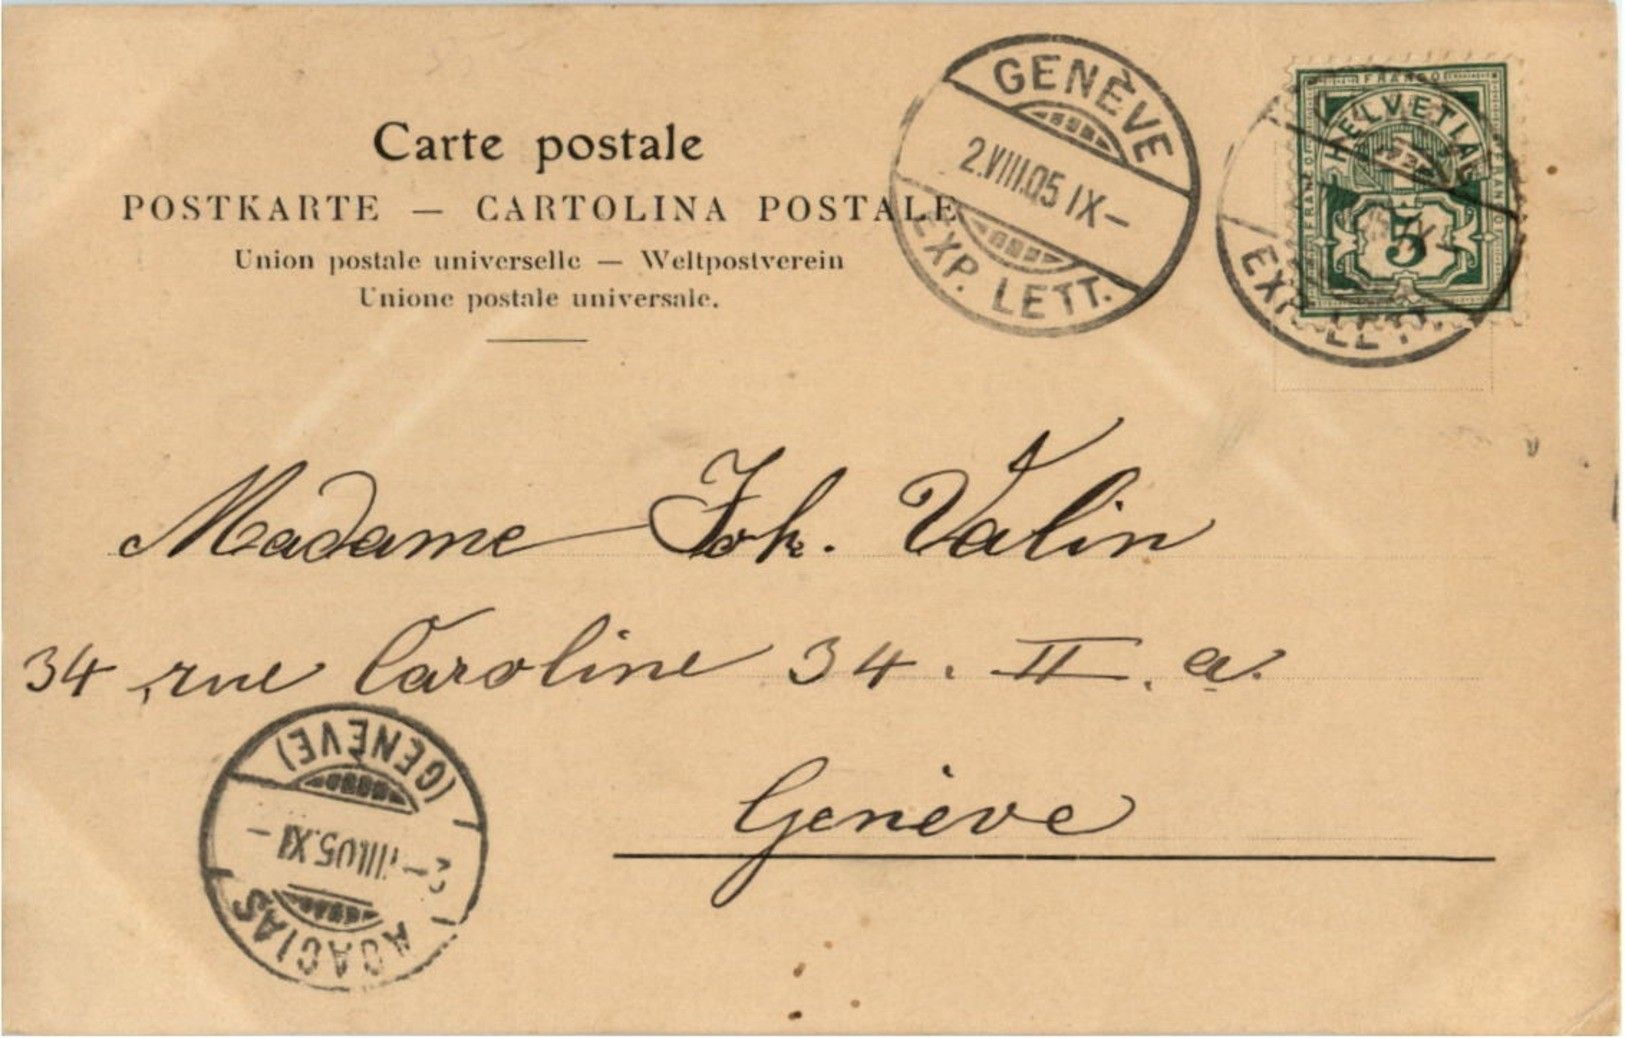 Carte postale
POSTKARTE — CARTOLINA POSTALE
Union postale universelle — Weltpostverein
Unione postale universale.
GENÈVE
2.VIII.05 IX–
EXP. LETT.
FRANCO
HELVETIA
FRANCO
5
EXP. LETT.
Madame Joh. Valin
34, rue Caroline 34. II. a.
Genève
(GENÈVE)
VIII.05.XI–
ACACIAS